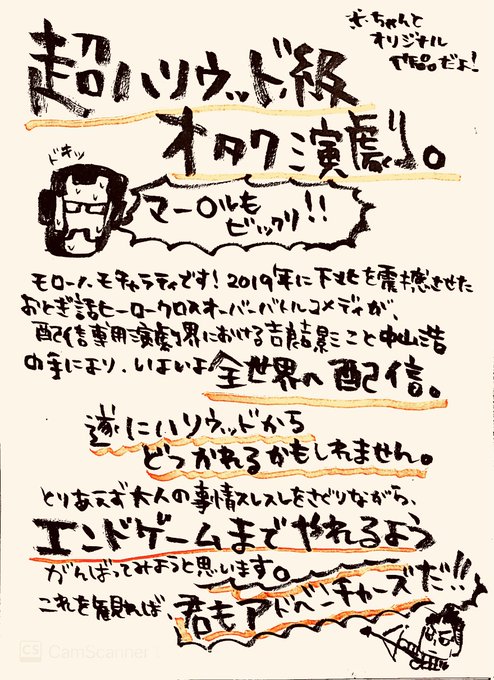 ちゃんと
オリジナル
作品だよ!
超ハリウッド級
オタク演劇。
ドキッ
マー〇ルも
ビックリ!!
モロー・モチャラティです!2019年に下北を震撼させた
おとぎ話ヒーロークロスオーバーバトルコメディが、
配信専用演劇界における吉良吉影こと中山浩
の手により、いよいよ全世界へ配信。
遂にハリウッドから
どつかれるかもしれません。
とりあえず大人の事情スレスレをさぐりながら、
エンドゲームまでやれるよう
がんばってみようと思います。
これを観れば、君もアドベンチャーズだ!!
CS CamScanner